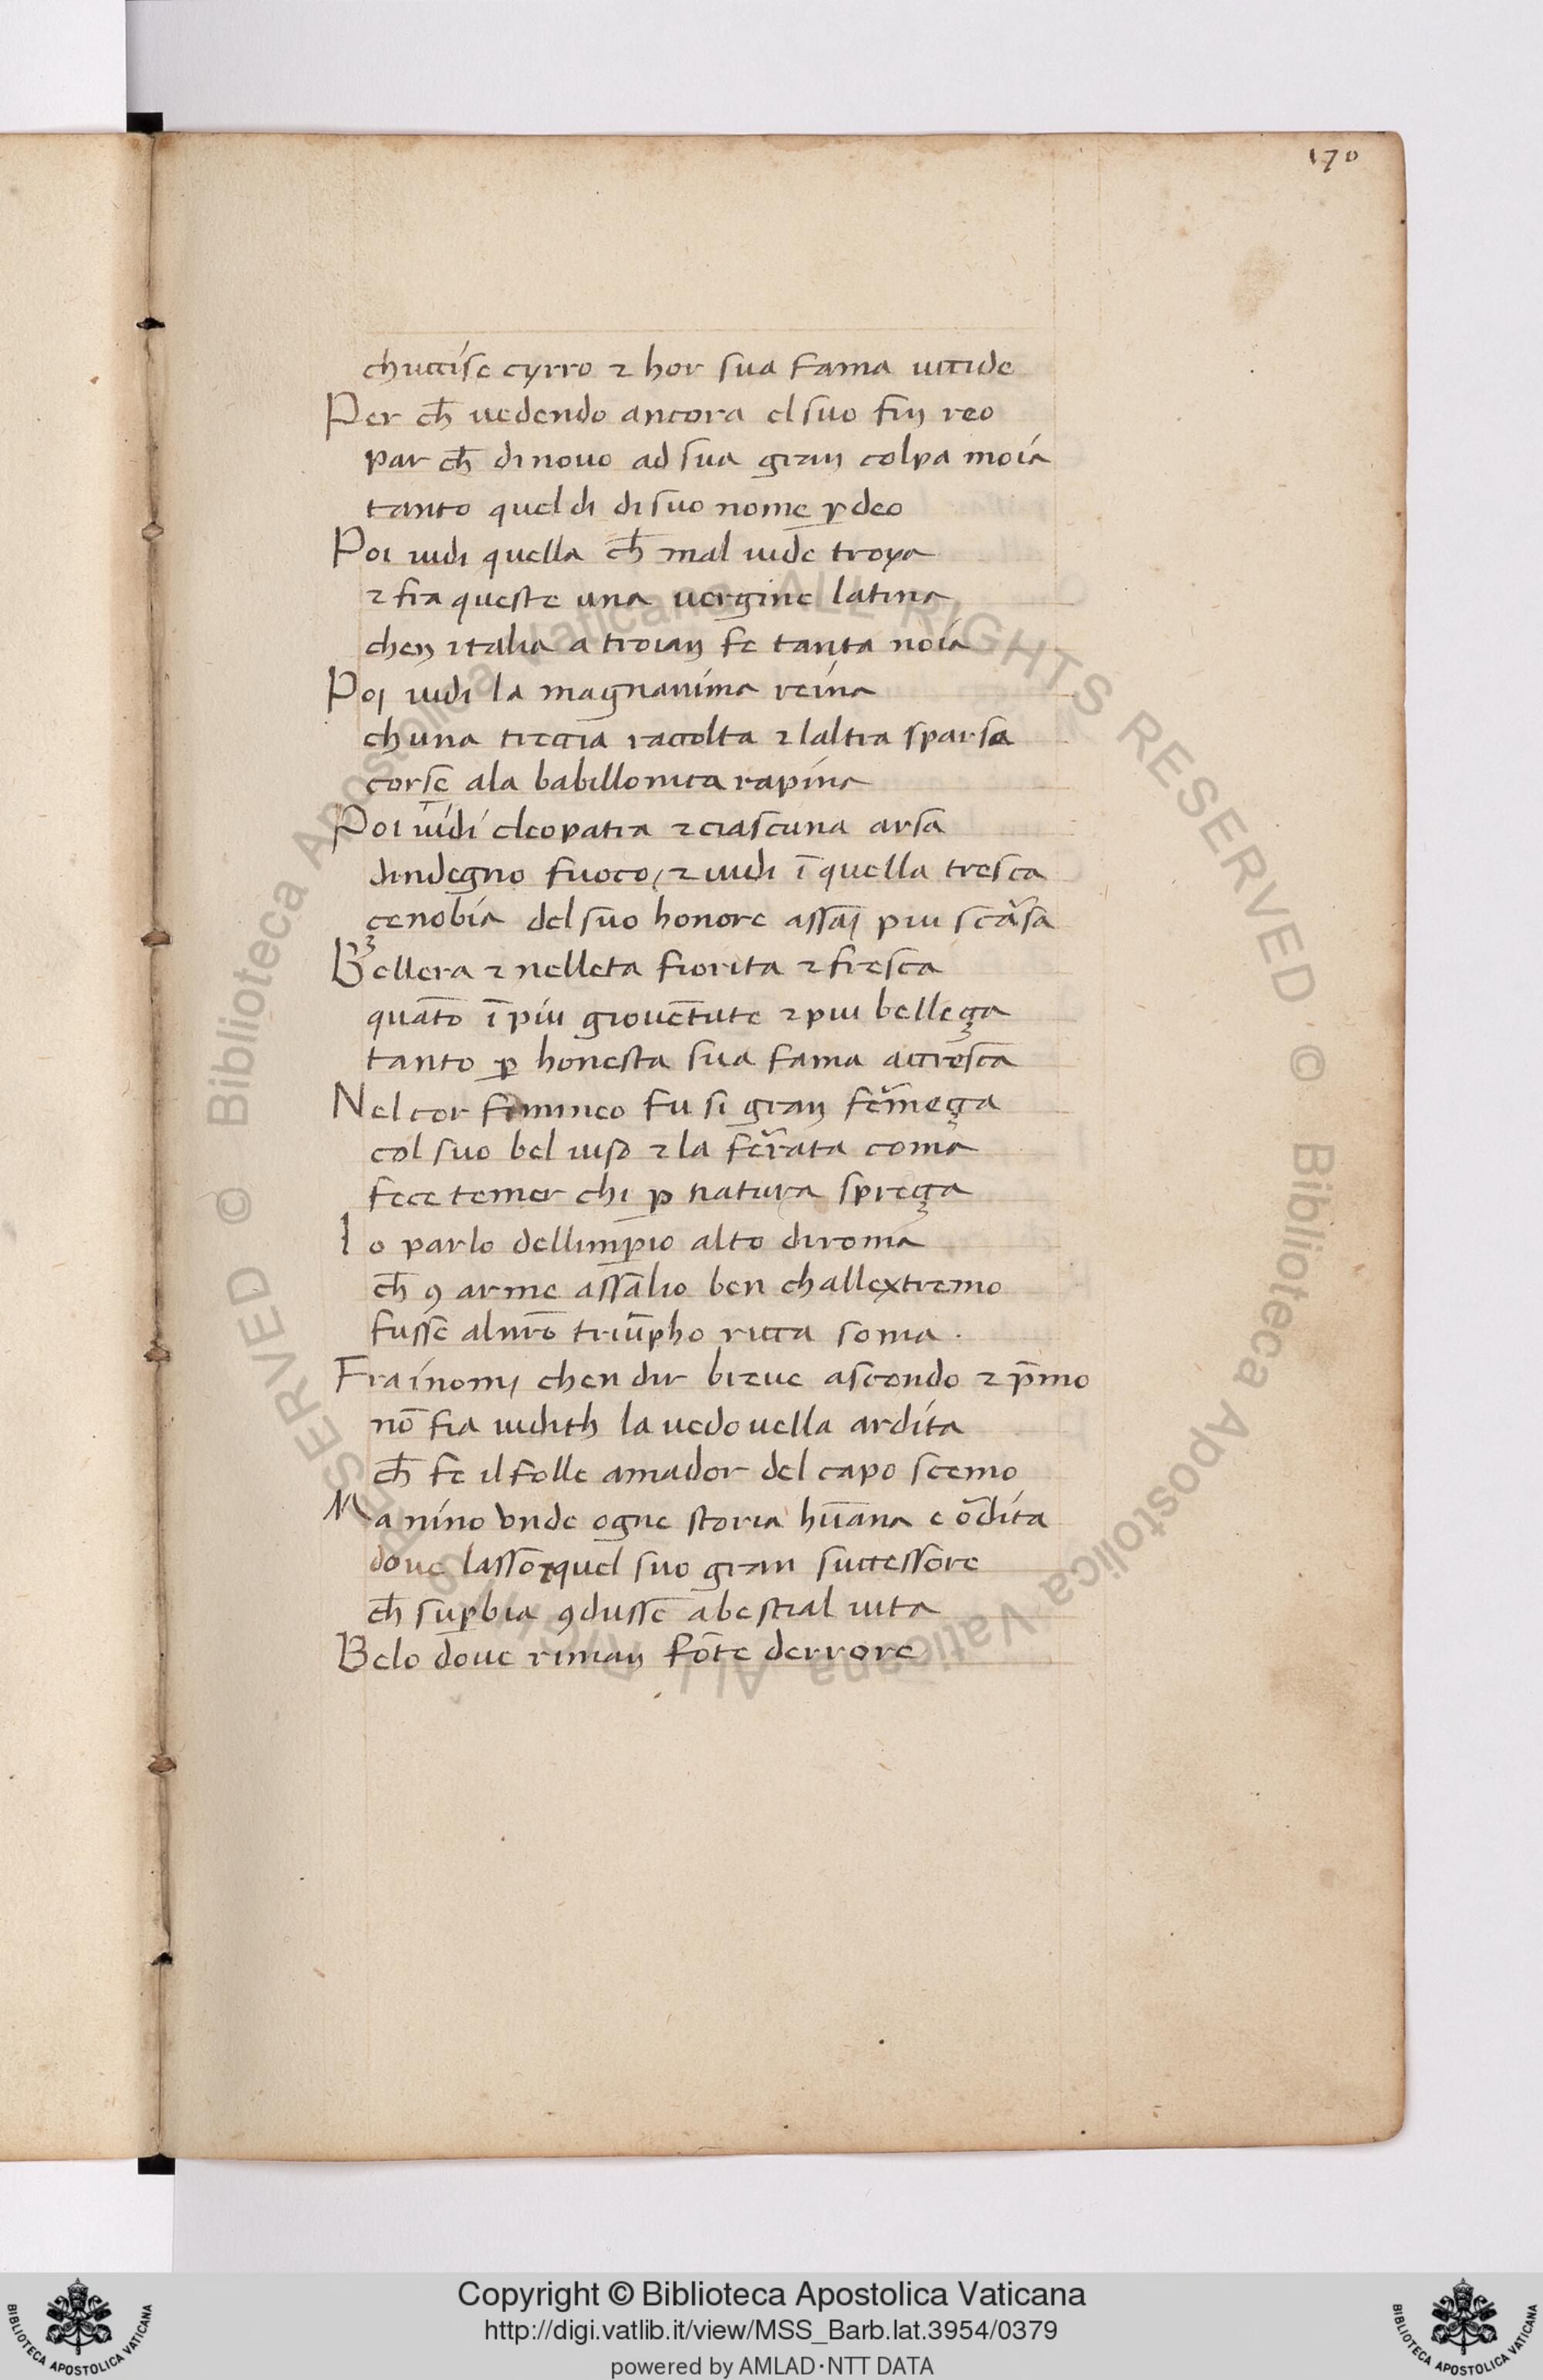 170
chuccise cyrro ⁊ hor sua fama uccide
Per ch̄ uedendo ancora el suo fin reo
par ch̄ dinouo ad sua gran colpa moia
tanto quel di di suo nome ꝑdeo
Poi uidi quella ch̄ mal uide troya
⁊ fra queste una uergine latina
chen italia a troian fe tanta noia
Poi uidi la magnanima reina
chuna treccia raccolta ⁊ laltra sparsa
corse ala babillonica rapina
Poi uidi cleopatra ⁊ ciascuna arsa
dindegno fuoco / ⁊ uidi ī quella tresca
cenobia del suo honore assai piu scarsa
Bellera ⁊ nelleta fiorita ⁊ fresca
quāto ī piu giouētute ⁊ piu belleça
tanto ꝑ honesta sua fama accresca
Nel cor femineo fu si gran fermeça
col suo bel uiso ⁊ la ferrata coma
fece temer chi ꝑ natura spreça
Io parlo dellimꝑio alto di roma
ch̄ ꝯ arme assalio ben challextremo
fusse al nr̄o triūpho ricca soma .
Fra i nomi chen dir breue ascondo ⁊ p̄mo
nō fia iudith la uedouella ardita
ch̄ fe il folle amador del capo scemo
Ma nino onde ogne storia hūana e ordita
doue lasso ⁊ quel suo gran successore
ch̄ suꝑbia ꝯdusse a bestial uita
Belo doue riman fōte derrore
© Biblioteca Apostolica Vaticana ALL RIGHTS RESERVED © Biblioteca Apostolica Vaticana ALL RIGHTS RESERVED
Copyright © Biblioteca Apostolica Vaticana
http://digi.vatlib.it/view/MSS_Barb.lat.3954/0379
powered by AMLAD·NTT DATA
BIBLIOTECA APOSTOLICA VATICANA
BIBLIOTECA APOSTOLICA VATICANA